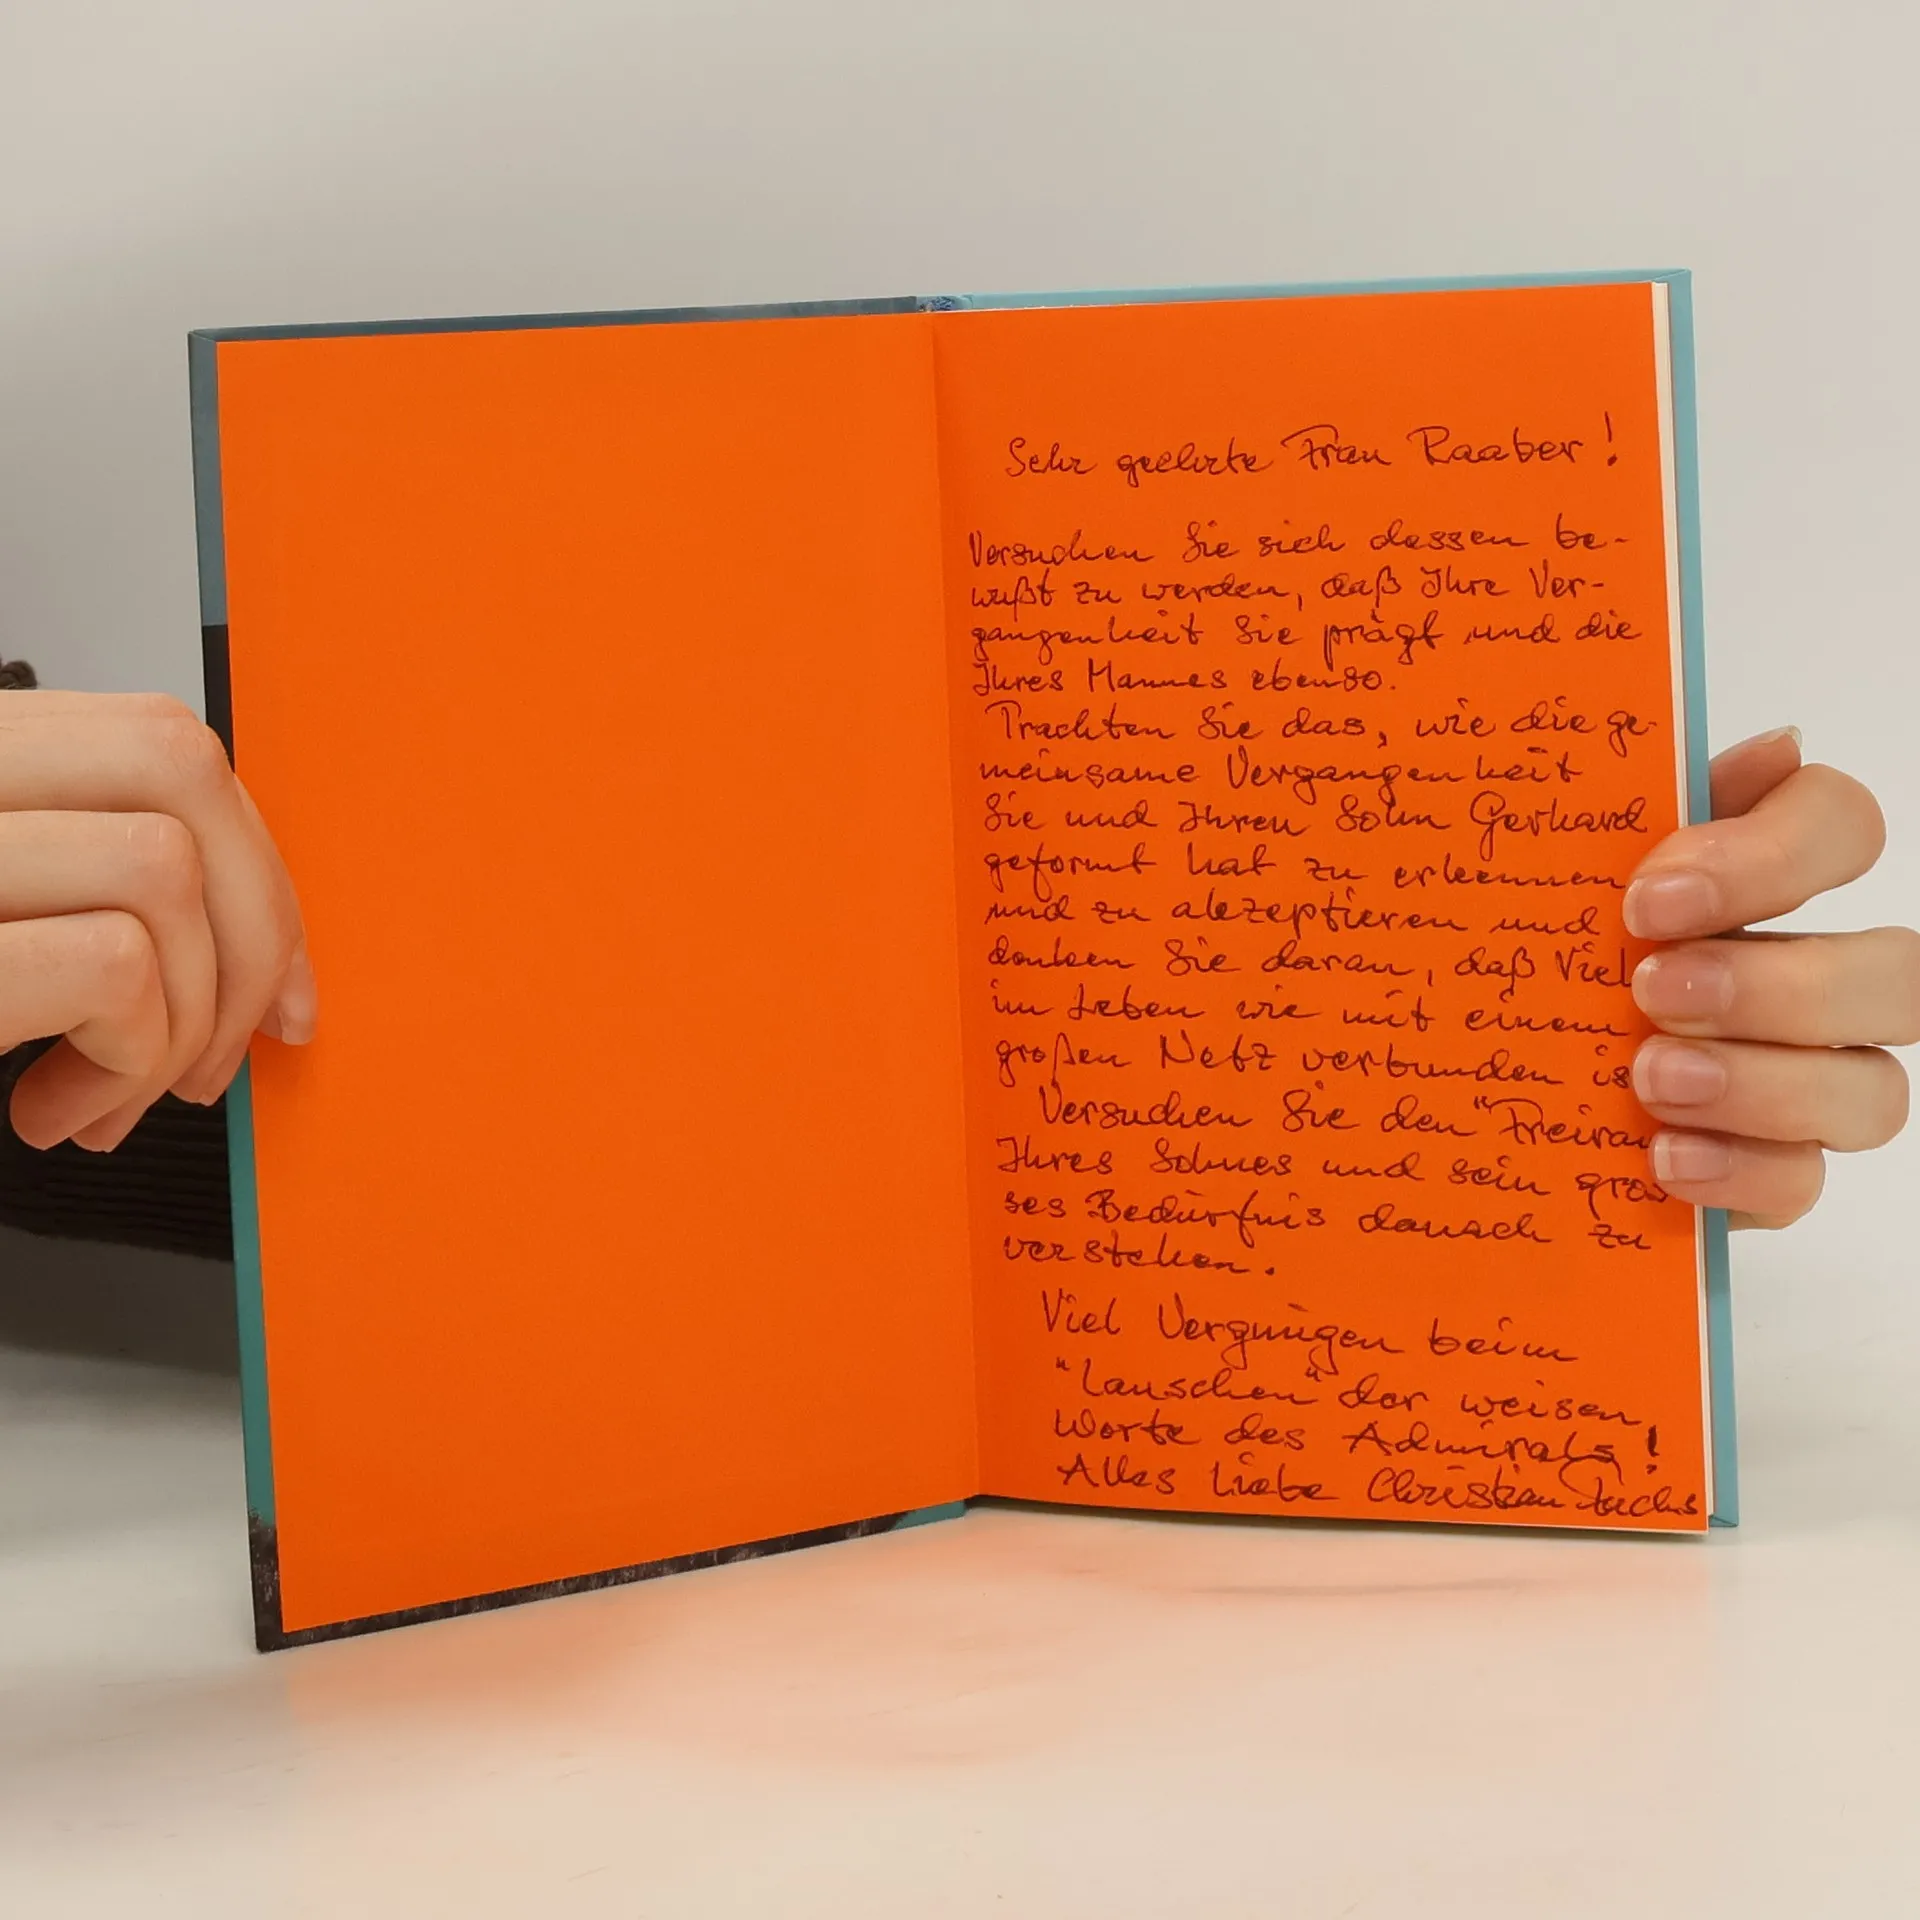 Sehr geehrte Frau Raaber!
Versuchen Sie sich dessen be-
wußt zu werden, daß Ihre Ver-
gangenheit Sie prägt und die
Ihres Mannes ebenso.
Trachten Sie das, wie die ge-
meinsame Vergangenheit
Sie und Ihren Sohn Gerhard
geformt hat zu erkennen
und zu akzeptieren und
denken Sie daran, daß Viel
im Leben wie mit einem
großen Netz verbunden is
Versuchen Sie den "Freirau
Ihres Sohnes und sein gros
ses Bedürfnis danach zu
verstehen.
Viel Vergnügen beim
"Lauschen" der weisen
Worte des Admirals!
Alles Liebe Christian Fuchs